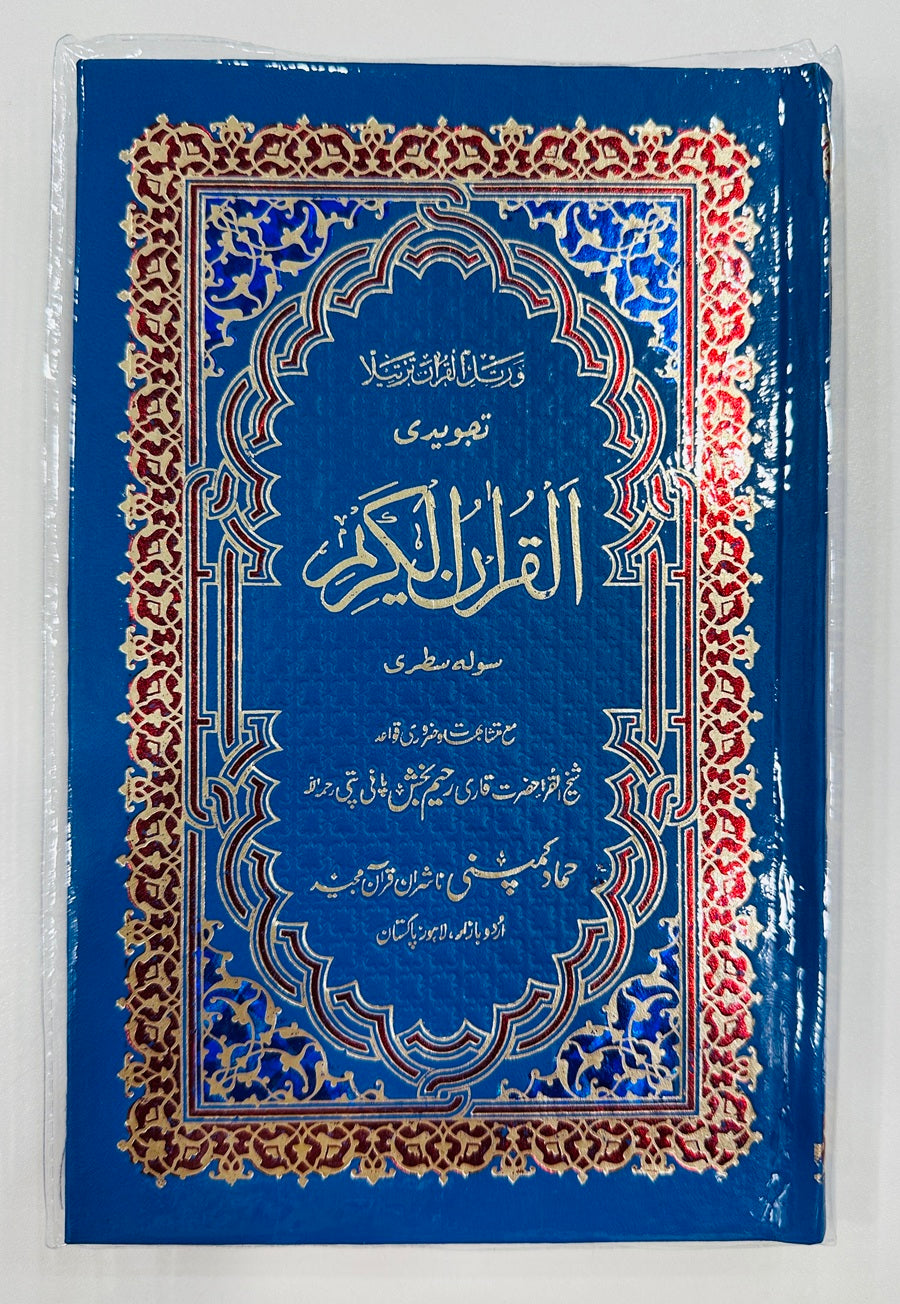 وَرَتِّلِ الْقُرْاٰنَ تَرْتِيْلًا
تجویدی
اَلْقُرْاٰنُ الْكَرِيْمُ
سولہ سطری
مع متشابہات و ضروری قواعد
شیخ القراء حضرت قاری رحیم بخش پانی پتی رحمہ اللہ
حماد کمپنی ناشران قرآن مجید
اُردو بازار، لاہور پاکستان